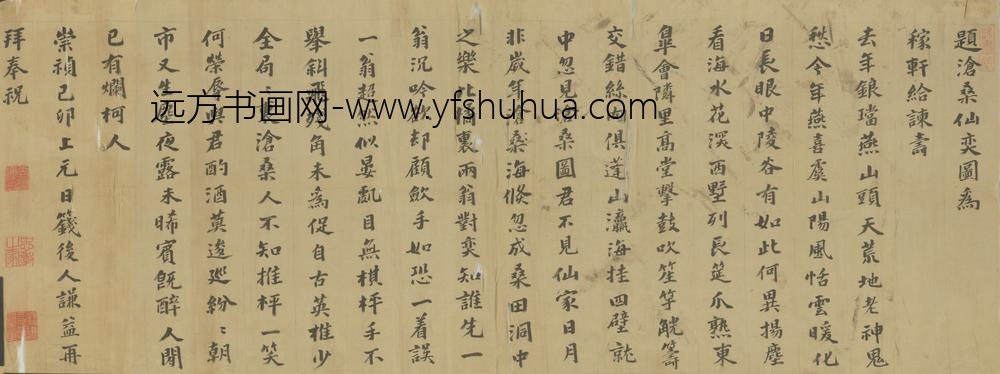 題滄桑仙奕圖為
稼軒給諫壽
去年鋃璫燕山頭天荒地老神鬼
愁今年燕喜虞山陽風恬雲暖化
日長眼中陵谷有如此何異揚塵
看海水花深西墅列長筵爪熟東
皐會隣里高堂擊鼓吹笙竽觥籌
交錯絲俱蓬山瀛海挂四壁就
中忽見桑圖君不見仙家日月
非歲年桑海倐忽成桑田洞中
之樂此裏兩翁對奕知誰先一
翁沉吟欲却顧歛手如恐一着誤
一翁超然似晏亂目無棋枰手不
舉斜飛殘角未為促自古英雄少
全局滄桑人不知推枰一笑
何榮辱與君酌酒莫逡巡紛〻朝
市又生夜露未晞賓旣醉人間
已有爛柯人
崇禎己卯上元日籛後人謙益再
拜奉祝
远方书画网-www.yfshuhua.com